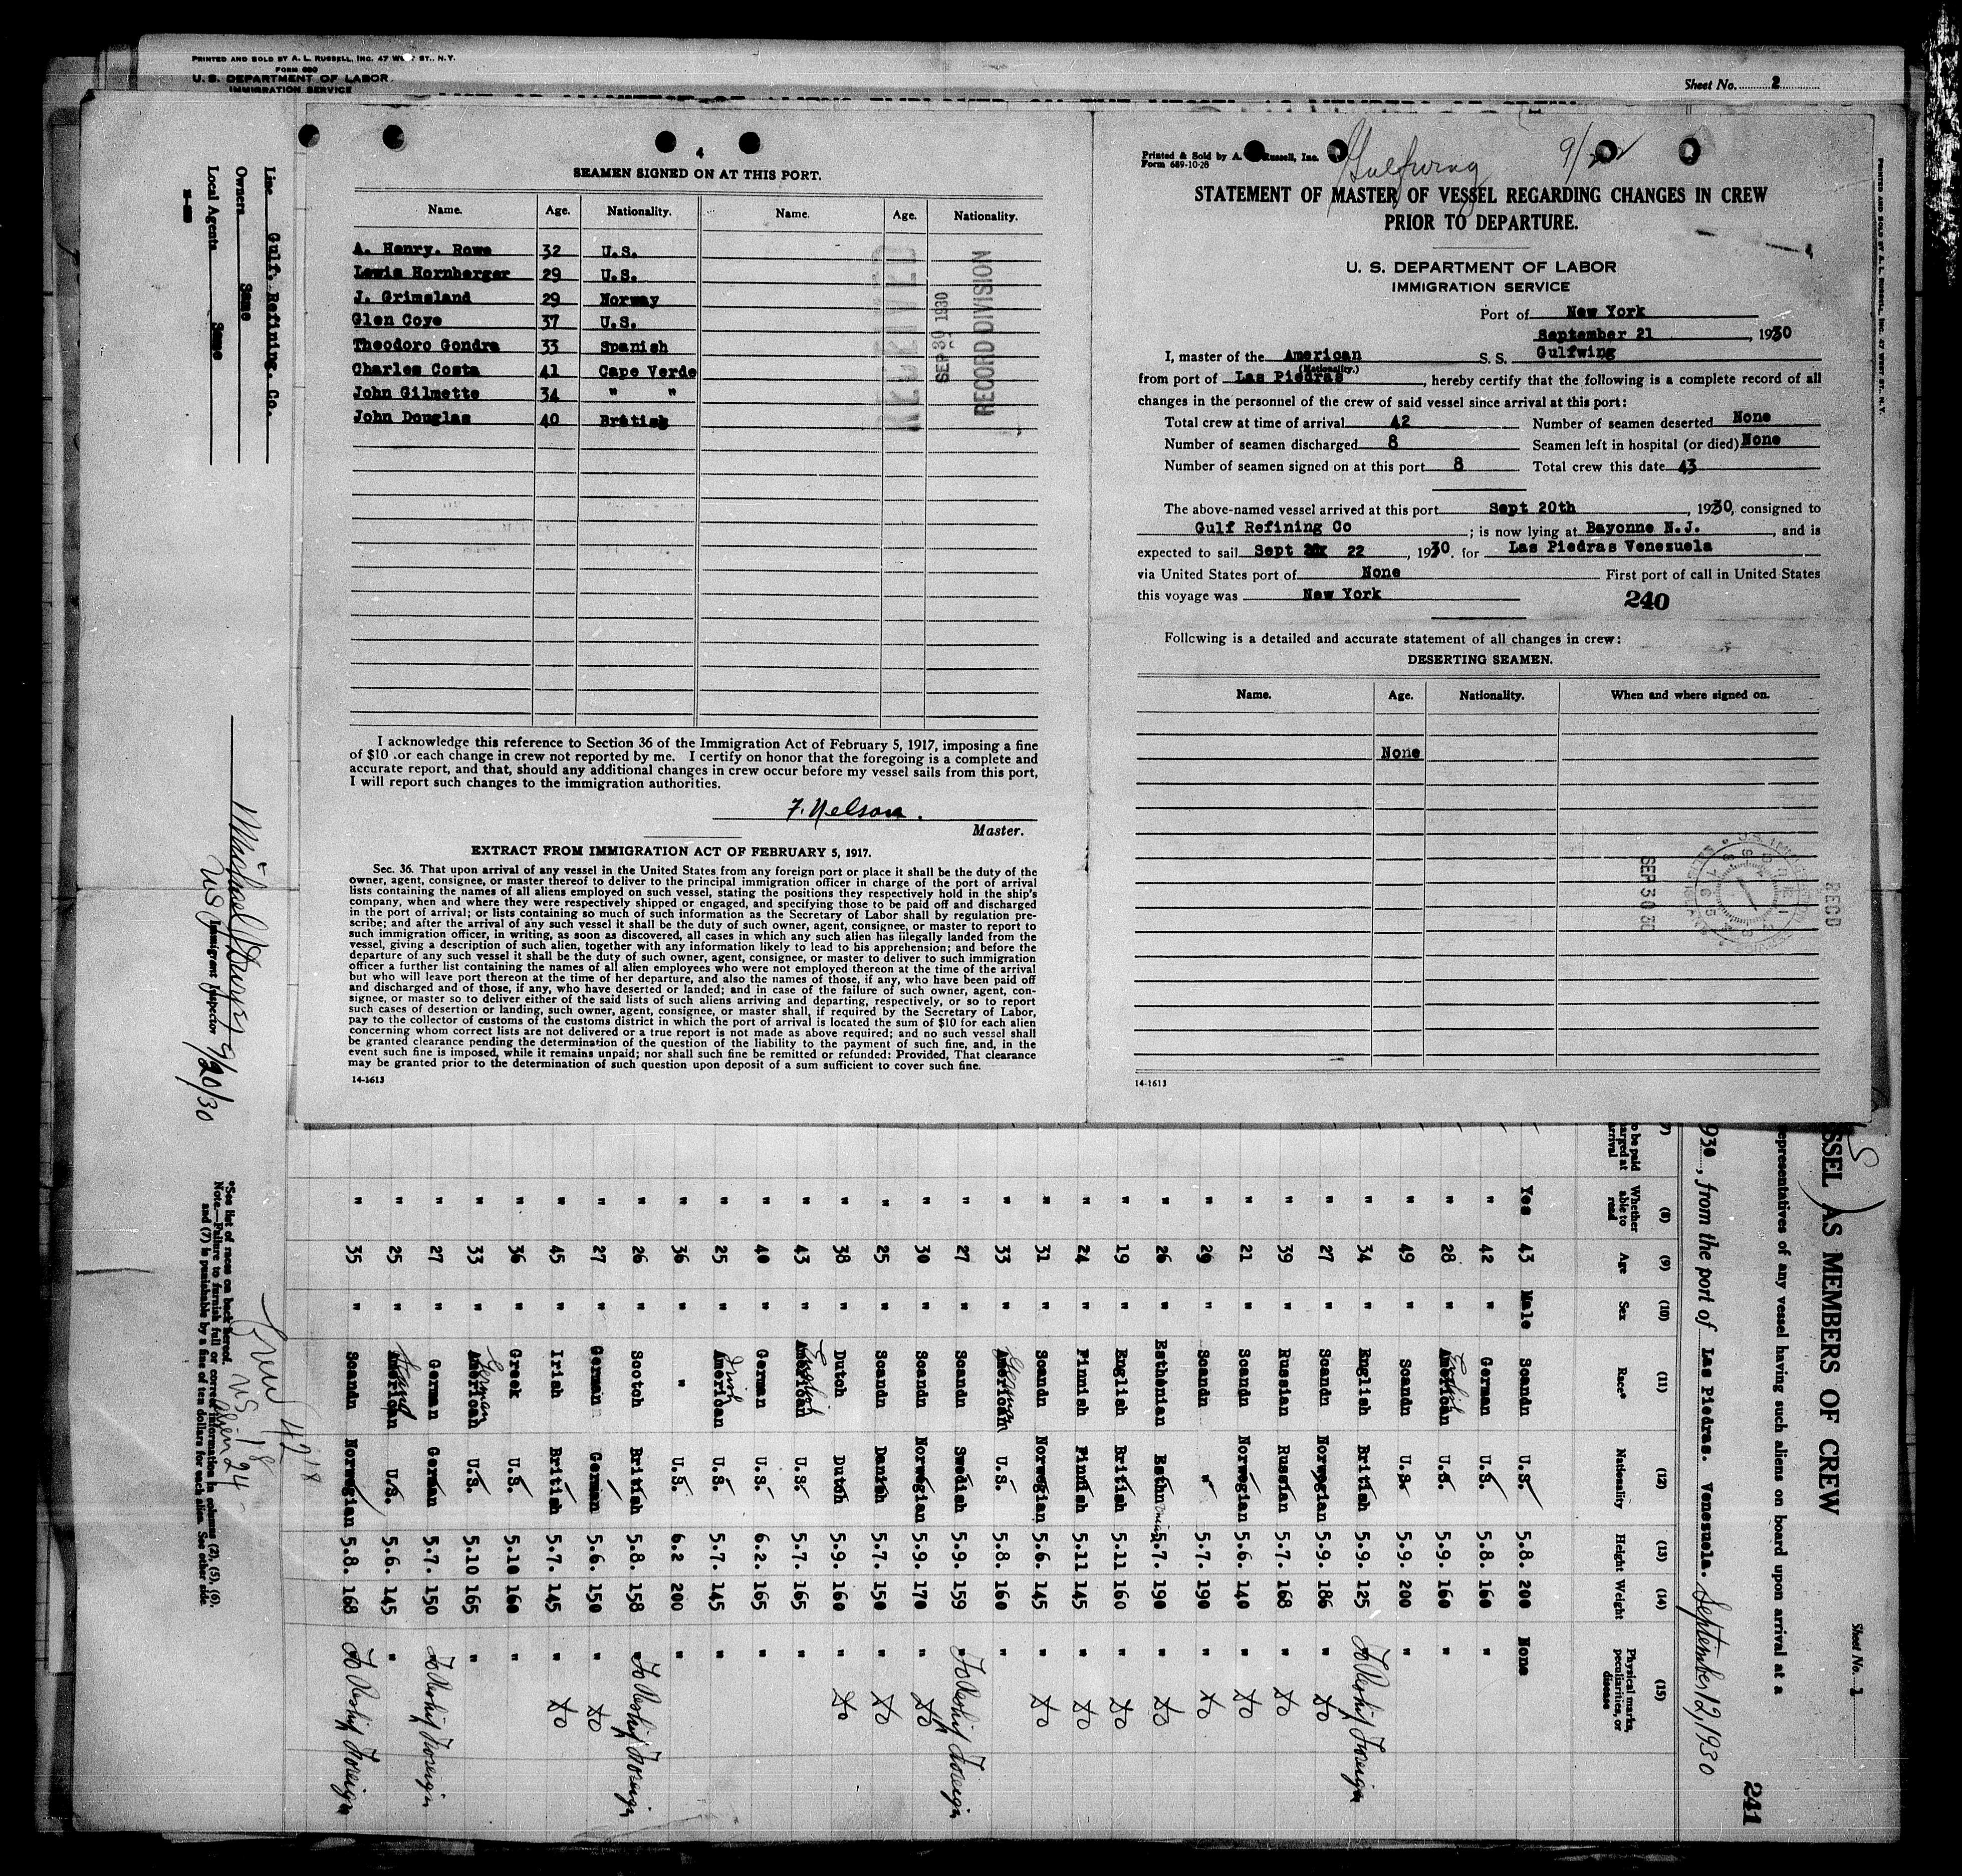 PRINTED AND SOLD BY A. L. RUSSELL, INC. 47 WEST ST., N.Y.
FORM 680
U. S. DEPARTMENT OF LABOR
IMMIGRATION SERVICE
Sheet No. 2
Line Gulf. Refining. Co.
Owners Same
Local Agents Same
Immigrant Inspector
9/20/30
4
SEAMEN SIGNED ON AT THIS PORT.
Name. Age. Nationality. Name. Age. Nationality.
A. Henry. Rowe 32 U.S.
Lewis Hornberger 29 U.S.
J. Grimsland 29 Norway
Glen Coye 37 U.S.
Theodoro Gondra 33 Spanish
Charles Costa 41 Cape Verde
John Gilmette 34 " "
John Douglas 40 British
RECEIVED
SEP 30 1930
RECORD DIVISION
I acknowledge this reference to Section 36 of the Immigration Act of February 5, 1917, imposing a fine
of $10 .or each change in crew not reported by me. I certify on honor that the foregoing is a complete and
accurate report, and that, should any additional changes in crew occur before my vessel sails from this port,
I will report such changes to the immigration authorities.
F. Nelson.
Master.
EXTRACT FROM IMMIGRATION ACT OF FEBRUARY 5, 1917.
Sec. 36. That upon arrival of any vessel in the United States from any foreign port or place it shall be the duty of the
owner, agent, consignee, or master thereof to deliver to the principal immigration officer in charge of the port of arrival
lists containing the names of all aliens employed on such vessel, stating the positions they respectively hold in the ship's
company, when and where they were respectively shipped or engaged, and specifying those to be paid off and discharged
in the port of arrival; or lists containing so much of such information as the Secretary of Labor shall by regulation pre-
scribe; and after the arrival of any such vessel it shall be the duty of such owner, agent, consignee, or master to report to
such immigration officer, in writing, as soon as discovered, all cases in which any such alien has illegally landed from the
vessel, giving a description of such alien, together with any information likely to lead to his apprehension; and before the
departure of any such vessel it shall be the duty of such owner, agent, consignee, or master to deliver to such immigration
officer a further list containing the names of all alien employees who were not employed thereon at the time of the arrival
but who will leave port thereon at the time of her departure, and also the names of those, if any, who have been paid off
and discharged and of those, if any, who have deserted or landed; and in case of the failure of such owner, agent, con-
signee, or master so to deliver either of the said lists of such aliens arriving and departing, respectively, or so to report
such cases of desertion or landing, such owner, agent, consignee, or master shall, if required by the Secretary of Labor,
pay to the collector of customs of the customs district in which the port of arrival is located the sum of $10 for each alien
concerning whom correct lists are not delivered or a true report is not made as above required; and no such vessel shall
be granted clearance pending the determination of the question of the liability to the payment of such fine, and, in the
event such fine is imposed, while it remains unpaid; nor shall such fine be remitted or refunded: Provided, That clearance
may be granted prior to the determination of such question upon deposit of a sum sufficient to cover such fine.
14-1613
Printed & Sold by A. Russell, Inc.
Form 689-10-28
Gulfwing
STATEMENT OF MASTER OF VESSEL REGARDING CHANGES IN CREW
PRIOR TO DEPARTURE.
U. S. DEPARTMENT OF LABOR
IMMIGRATION SERVICE
Port of New York
September 21, 1930
I, master of the American S. S. Gulfwing
(Nationality.)
from port of Las Piedras, hereby certify that the following is a complete record of all
changes in the personnel of the crew of said vessel since arrival at this port:
Total crew at time of arrival 42 Number of seamen deserted None
Number of seamen discharged 8 Seamen left in hospital (or died) None
Number of seamen signed on at this port 8 Total crew this date 43
The above-named vessel arrived at this port Sept 20th, 1930, consigned to
Gulf Refining Co; is now lying at Bayonne N.J., and is
expected to sail Sept 22, 1930. for Las Piedras Venezuela
via United States port of None First port of call in United States
this voyage was New York
240
Following is a detailed and accurate statement of all changes in crew:
DESERTING SEAMEN.
Name. Age. Nationality. When and where signed on.
None
RECD
SEP 30 30
14-1613
PRINTED AND SOLD BY A. L. RUSSELL, INC. 47 WEST ST. N. Y.
Sheet No. 1
241
SSEL AS MEMBERS OF CREW
epresentatives of any vessel having such aliens on board upon arrival at a
930, from the port of Las Piedras. Venezuela. September 12, 1930
(7) (8) (9) (10) (11) (12) (13) (14) (15)
Whether able to read Age Sex Race* Nationality Height Weight Physical marks, peculiarities, or disease
Yes 43 Male Scandn U.S. 5.8. 200 None
" 42 " German U.S. 5.8. 160 "
" 28 " American English U.S. 5.9. 160 "
" 49 " Scandn U.S. 5.9. 200 "
" 34 " English British 5.9. 125 " To Reship Foreign
" 27 " Scandn Norwegian 5.9. 186 " Do
" 39 " Russian Russian 5.7. 168 " Do
" 21 " Scandn Norwegian 5.6. 140 " Do
" 29 " Scandn " 5.7. 190 " Do
" 26 " Esthenian Esthn 5.7. 190 " Do
" 19 " English British 5.11 160 " Do
" 24 " Finnish Finnish 5.11 145 " Do
" 31 " Scandn Norwegian 5.6. 145 " Do
" 33 " American German U.S. 5.8. 160 "
" 27 " Scandn Swedish 5.9. 159 " To Reship Foreign
" 30 " Scandn Norwegian 5.9. 170 " Do
" 25 " Scandn Danish 5.7. 150 " Do
" 38 " Dutch Dutch 5.9. 160 " Do
" 43 " American English U.S. 5.7. 165 "
" 40 " German U.S. 6.2. 165 "
" 25 " American Irish U.S. 5.7. 145 "
" 36 " " U.S. 6.2 200 "
" 26 " Scotch British 5.8. 158 " To Reship Foreign
" 27 " German German 5.6. 150 " Do
" 45 " Irish British 5.7. 145 " Do
" 36 " Greek U.S. 5.10 160 "
" 33 " American German U.S. 5.10 165 "
" 27 " German German 5.7. 150 " To Reship Foreign
" 25 " American U.S. 5.6. 145 "
" 35 " Scandn Norwegian 5.8. 168 " To Reship Foreign
Crew 42
US 18
Alien 24
*See list of races on back hereof.
Note.—Failure to furnish full or correct information in columns (2), (5), (6),
and (7) is punishable by a fine of ten dollars for each alien. See other side